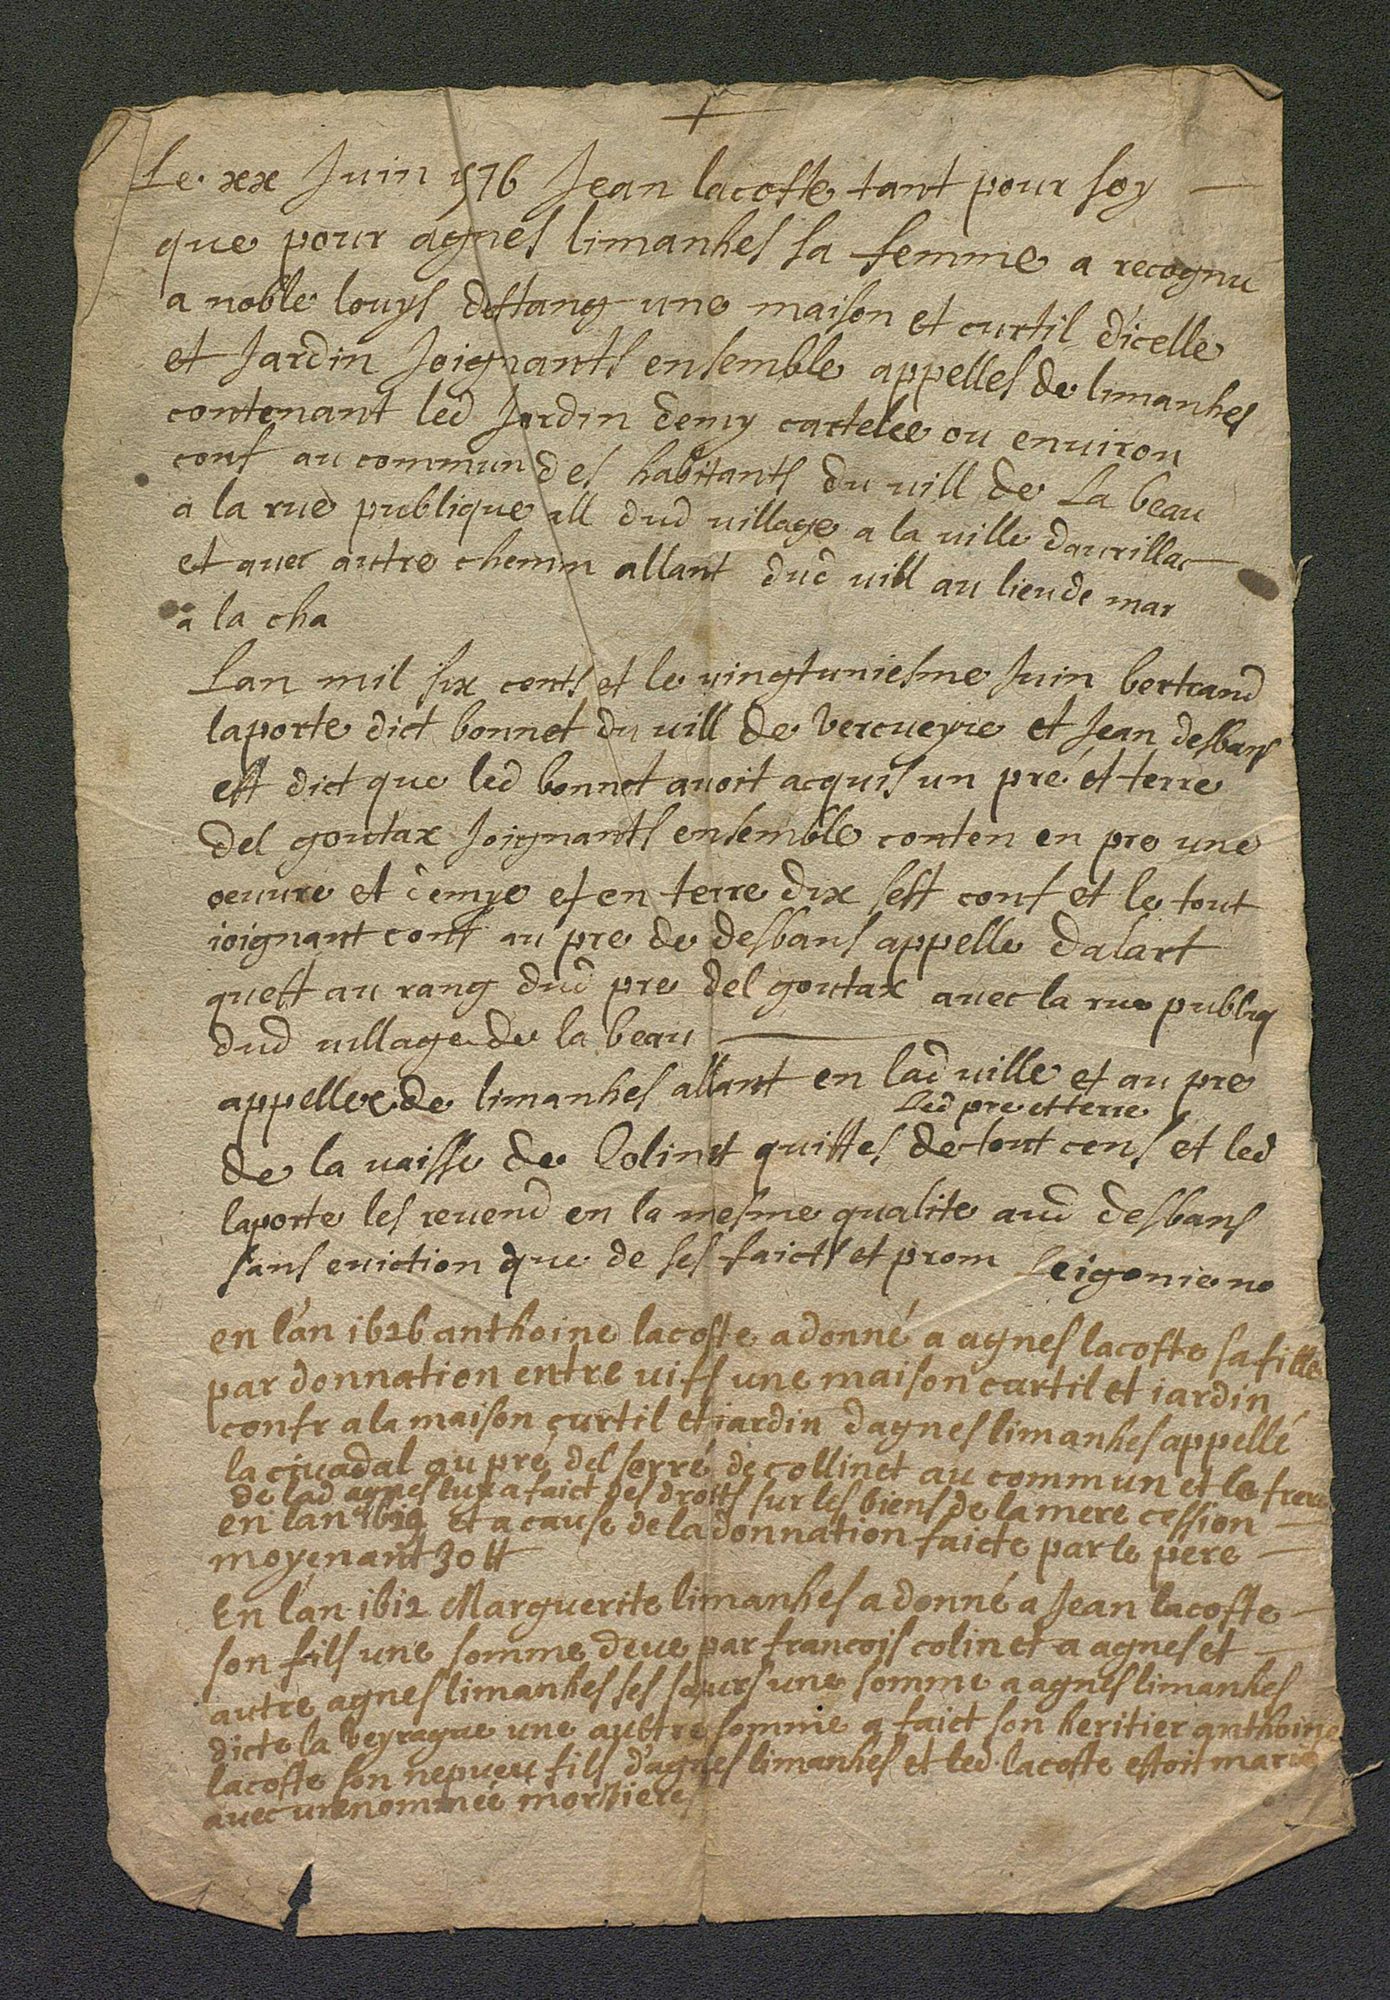 Le xx Juin 1576 Jean lacoste tant pour soy
que pour agnes limanhes sa femme a recognu
a noble louys destang une maison et curtil d'icelle
et Jardin Joignants ensemble appelles de limanhes
contenant led Jardin demy cartelee ou environ
conf au commun des habitants du vill de La beau
a la rue publique all dud village a la ville daurillac
et avec autre chemin allant dud vill au lieu de mar
a la cha
Lan mil six cents et le vingtuniesme Juin bertrand
laporte dict bonnet du vill de vercueyre et Jean desbans
est dict que led bonnet avoit acquis un pré et terre
del goutax Joignants ensemble conten en pre une
oeuvre et demye et en terre dix sest conf et le tout
ioignant conf au pre de desbans appelle dalart
quest au rang dud pre del goutax avec la rue publiq
dud village de la beau
appellee de limanhes allant en lad ville et au pre
led pre et terre
de la vaisse de Colinet quittes de tout cens et led
laporte les revend en la mesme qualite aud desbans
sans eviction que de ses faicts et prom Leigonie no
en l'an 1626 anthoine lacoste a donné a agnes lacoste sa fille
par donnation entre vifs une maison curtil et iardin
confr a la maison curtil et iardin d'agnes limanhes appellé
la civadal au pré del serré de collinet au commun et le frere
de lad agnes luy a faict des droits sur les biens de la mere cession
en l'an 1629 et a cause de la donnation faicte par le pere
moyenant 30 tt
En l'an 1612 Marguerite limanhes a donné a Jean lacoste
son fils une somme deue par francois colinet a agnes et
autre agnes limanhes ses soeurs une somme a agnes limanhes
dicte la veyrague une aubtre somme a faict son heritier anthoine
lacoste son nepveu fils d'agnes limanhes et led lacoste estoit marié
avec une nommée morsieres